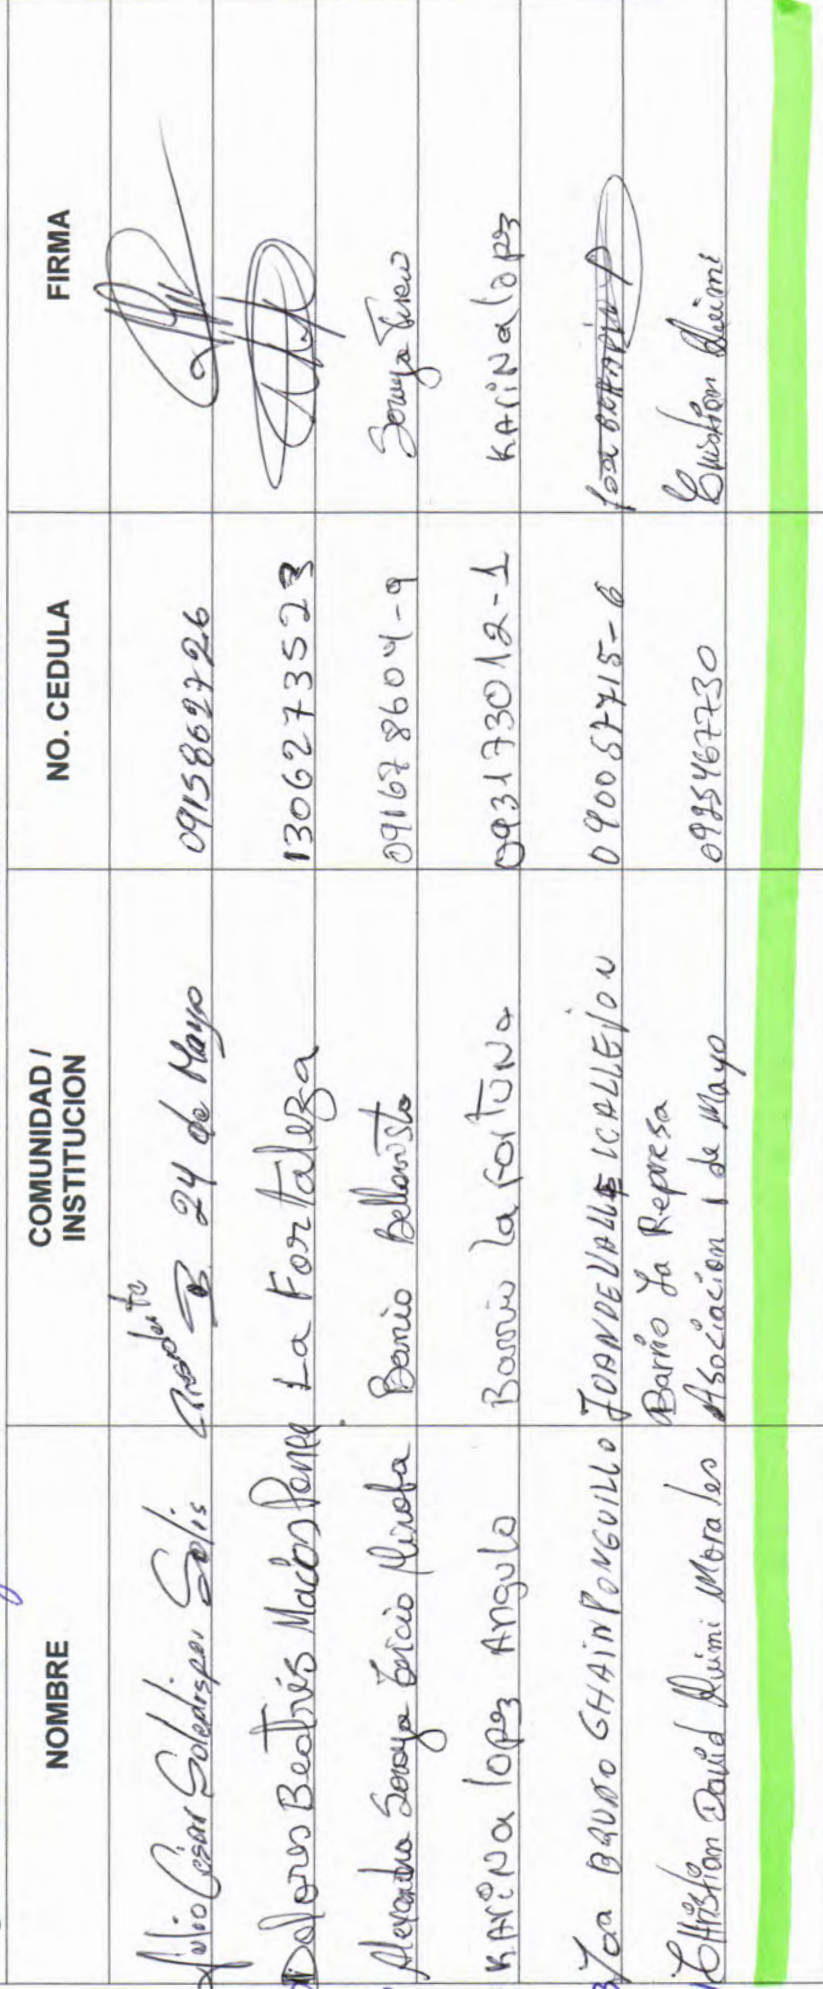 NOMBRE COMUNIDAD / INSTITUCION NO. CEDULA FIRMA
Julio César Soledispa Solis 24 de Mayo 0915862726
Dolores Beatriés Macías Ponce La Fortaleza 1306273523
Alexandra Soraya Barrio Bellavista 091678604-9 Soraya
KARiNa lopez Angulo Barrio la ForTUNa 093173012-1 KARiNa lopez
BRUNO CHAiNPONGUILLO JUANDEVALLE CALLEJON 090057715-6
Barrio La Represa
Christian David Quimi Morales Asociacion 1 de Mayo 0925467730 Christian Quimi